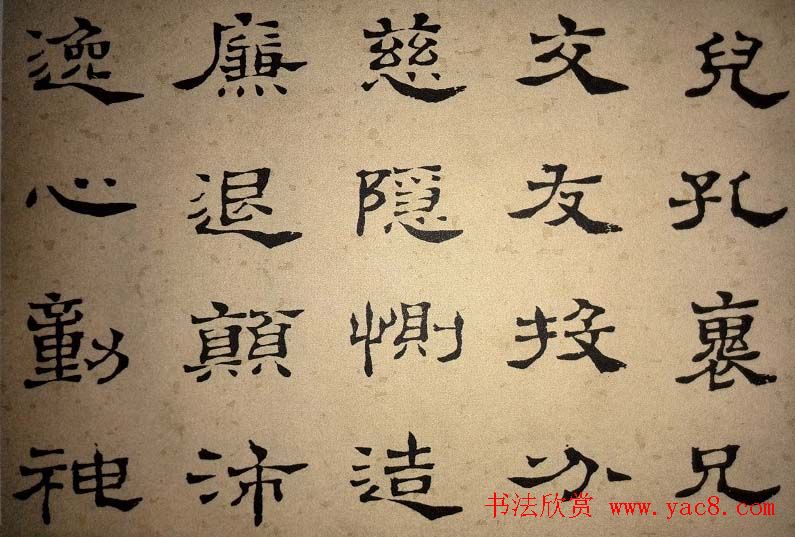 兒孔褱兄
交友投分
慈隱惻造
廉退顛沛
逸心動神
书法欣赏 www.yac8.com